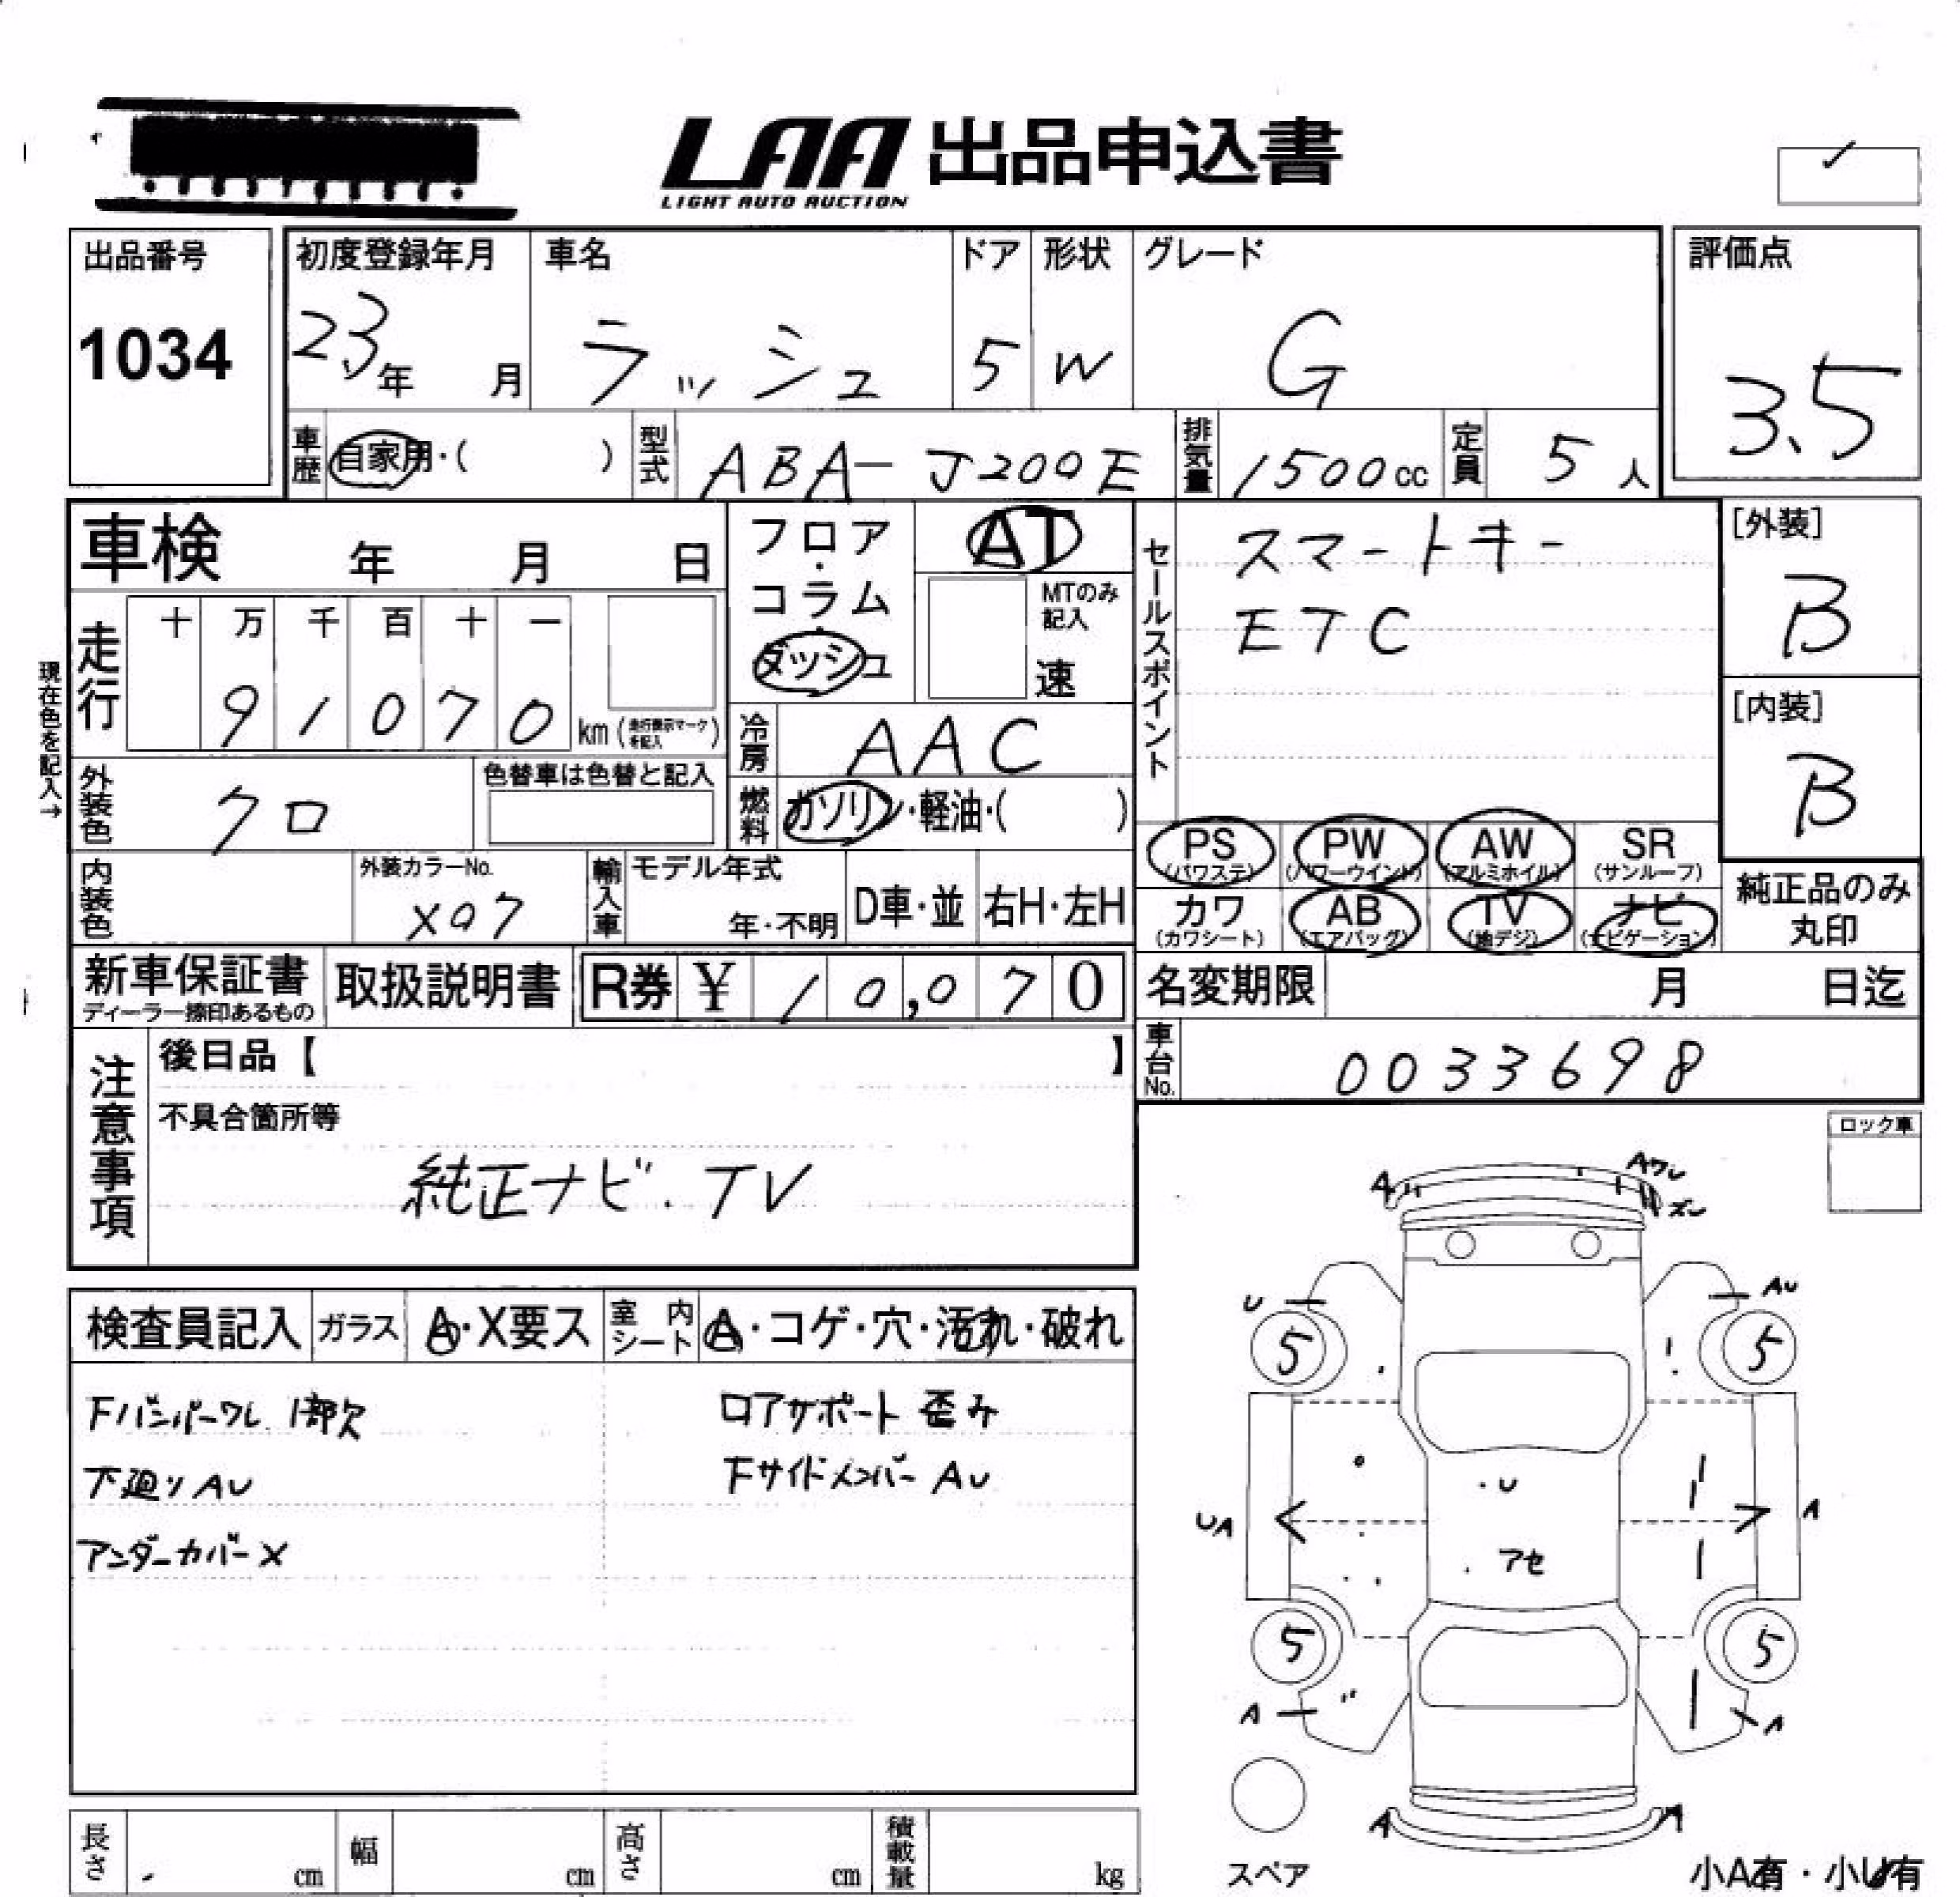 LAA 出品申込書
LIGHT AUTO AUCTION
出品番号
1034
初度登録年月
23年 月
車名
ラッシュ
ドア
5
形状
W
グレード
G
評価点
3.5
車歴 自家用・( )
型式 ABA-J200E
排気量 1500cc
定員 5人
車検 年 月 日
走行
十 万 千 百 十 一
9 1 0 7 0
km (走行表示マークを記入)
現在色を記入→
外装色 クロ
色替車は色替と記入
内装色
外装カラーNo.
X07
輸入車
モデル年式
年・不明
D車・並
右H・左H
フロア・コラム・ダッシュ
AT
MTのみ記入
速
冷房 AAC
燃料 ガソリン・軽油・( )
セールスポイント
スマートキー
ETC
[外装]
B
[内装]
B
PS (パワステ)
PW (パワーウインド)
AW (アルミホイル)
SR (サンルーフ)
カワ (カワシート)
AB (エアバッグ)
TV (地デジ)
ナビ (ナビゲーション)
純正品のみ丸印
新車保証書
ディーラー捺印あるもの
取扱説明書
R券 ¥ 10,070
名変期限 月 日迄
車台No. 0033698
注意事項
後日品【 】
不具合箇所等
純正ナビ.TV
ロック車
検査員記入
ガラス A・X要ス
室内シート A・コゲ・穴・汚れ・破れ
Fバンパーワレ 1部欠
下廻りAU
アンダーカバーX
ロアサポート 歪み
FサイドメンバーAU
A
Aワレ
ズレ
U
AU
5
5
・U
UA
A
アセ
5
5
A
A
A
A
スペア
小A有・小U有
長さ cm
幅 cm
高さ cm
積載量 kg